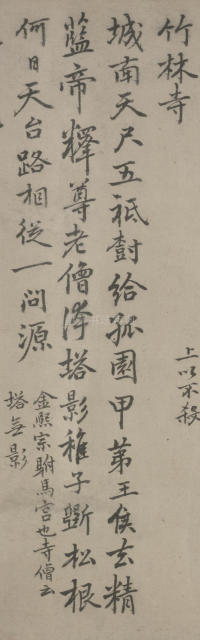 竹林寺
上以不殺
城南天尺五祗樹給孤園甲第王侯去精
藍帝釋尊老僧塔影稚子斲松根
何日天台路相從一問源
金熙宗駙馬宮也寺僧云
塔無影